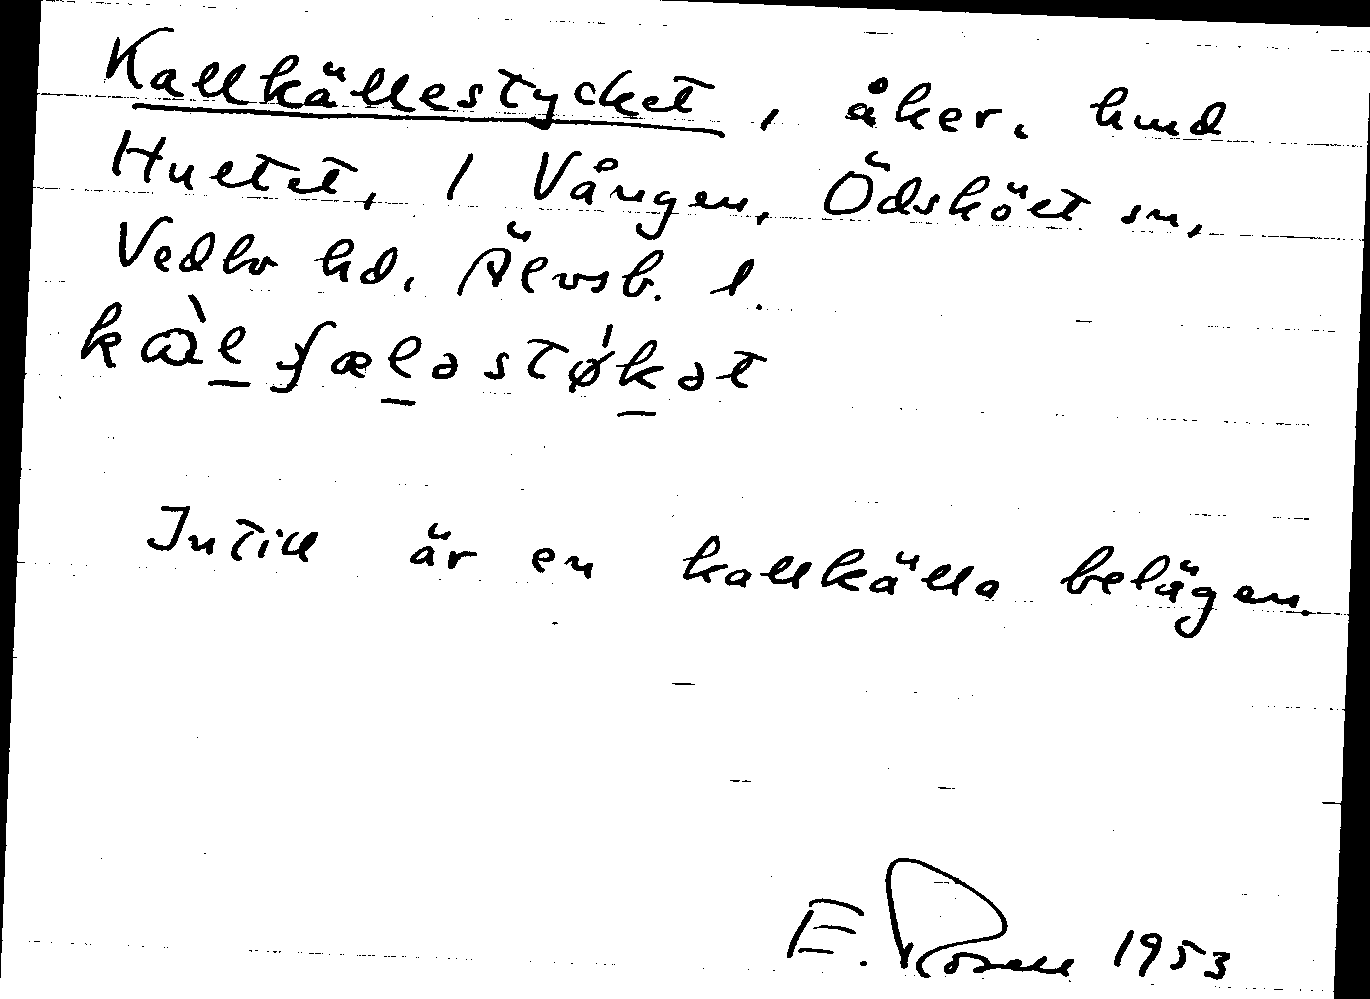 Kallkällestycket, åker, hmd
Hultet, 1 Vången, Ödskölt sn,
Vedbo hd. Älvsb. l.
kɑ̀l ʃæləstǿkət
Intill är en kallkälla belägen.
E. Rosell 1953